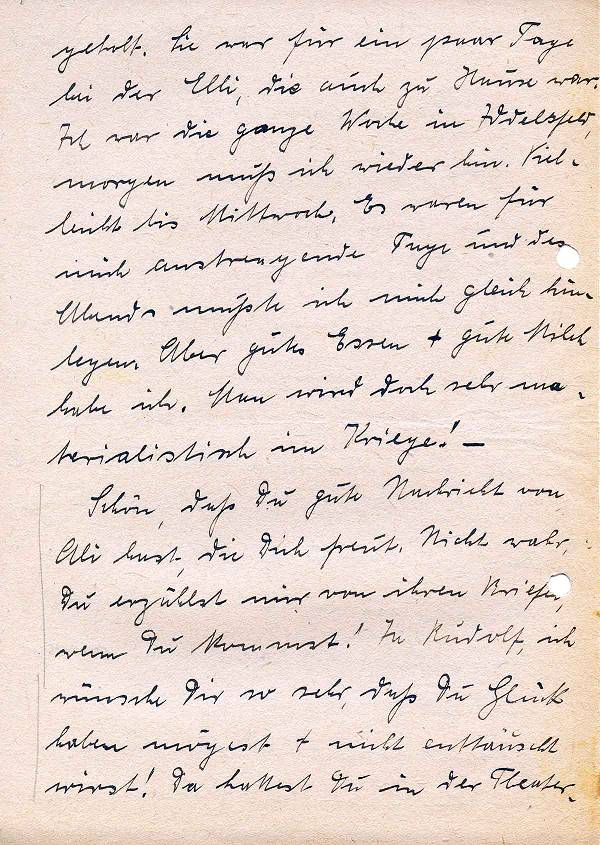 geholt. Sie war für ein paar Tage
bei der Elli, die auch zu Hause war.
Ich war die ganze Woche in Iddelsfeld,
morgen muß ich wieder hin. Viel-
leicht bis Mittwoch. Es waren für
mich anstrengende Tage und des
Abends mußte ich mich gleich hin-
legen. Aber gutes Essen + gute Milch
habe ich. Man wird doch sehr ma-
terialistisch im Kriege! –
Schön, daß Du gute Nachricht von
Ali hast, die Dich freut. Nicht wahr,
Du erzählst mir von ihren Briefen,
wenn Du kommst! Ja Rudolf, ich
wünsche Dir so sehr, daß Du Glück
haben mögest + nicht enttäuscht
wirst! Da hattest Du in der Theater-